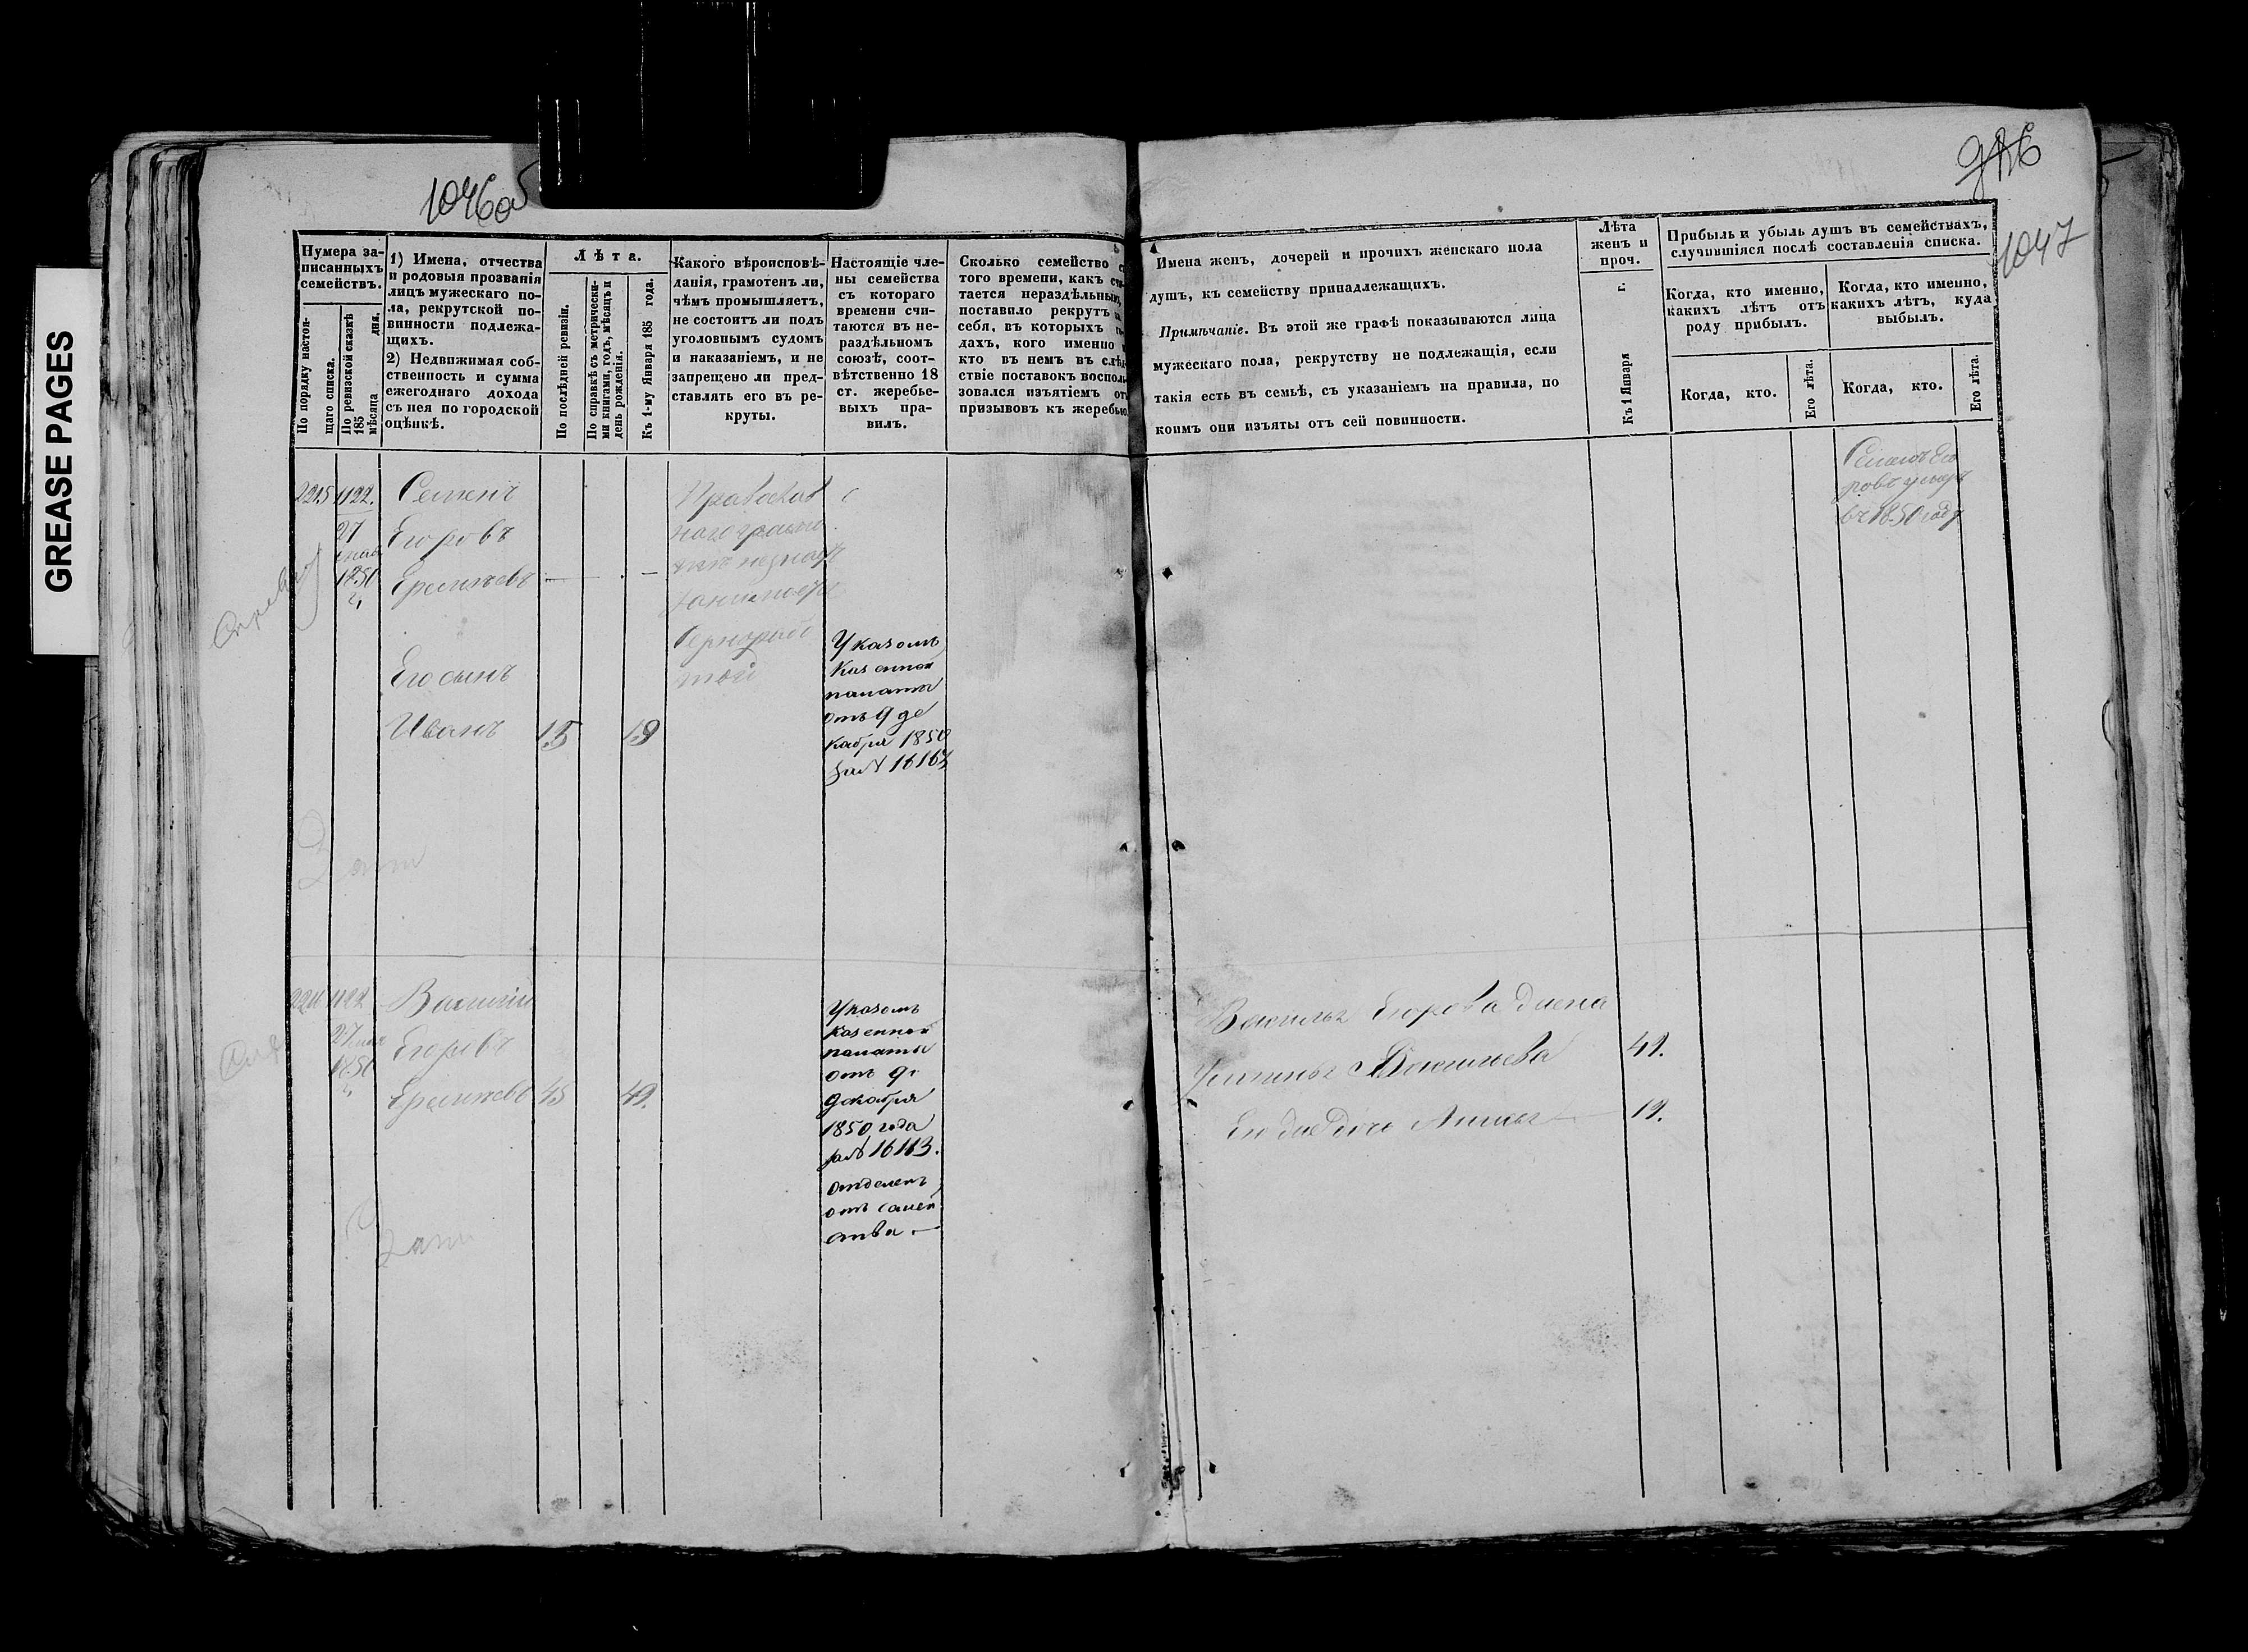 GREASE PAGES
1046об
946
1047
Нумера за-
писанныхъ
семействъ.
По порядку настоя-
щаго списка.
По ревизской сказкѣ
185 дня,
мѣсяца
1) Имена, отчества
и родовыя прозванія
лицъ мужескаго по-
ла, рекрутской по-
винности подлежа-
щихъ.
2) Недвижимая соб-
ственность и сумма
ежегоднаго дохода
съ нея по городской
оцѣнкѣ.
Лѣта.
По послѣдней ревизіи.
По справкѣ съ метрически-
ми книгами, годъ, мѣсяцъ и
день рожденія.
Къ 1-му Января 185 года.
Какого вѣроисповѣ-
данія, грамотенъ ли,
чѣмъ промышляетъ,
не состоитъ ли подъ
уголовнымъ судомъ
и наказаніемъ, и не
запрещено ли пред-
ставлять его въ ре-
круты.
Настоящіе чле-
ны семейства
съ котораго
времени счи-
таются въ не-
раздѣльномъ
союзѣ, соот-
вѣтственно 18
ст. жеребье-
выхъ пра-
вилъ.
Сколько семейство
того времени, какъ
тается нераздѣльнымъ,
поставило рекрутъ
себя, въ которыхъ
дахъ, кого именно
кто въ немъ въ слѣд-
ствіе поставокъ восполь-
зовался изъятіемъ отъ
призывовъ къ жеребью.
Имена женъ, дочерей и прочихъ женскаго пола
душъ, къ семейству принадлежащихъ.
Примѣчаніе. Въ этой же графѣ показываются лица
мужескаго пола, рекрутству не подлежащія, если
такія есть въ семьѣ, съ указаніемъ на правила, по
коимъ они изъяты отъ сей повинности.
Лѣта
женъ и
проч.
Къ 1 Января г.
Прибыль и убыль душъ въ семействахъ,
случившіяся послѣ составленія списка.
Когда, кто именно,
какихъ лѣтъ отъ
роду прибылъ.
Когда, кто именно,
какихъ лѣтъ, куда
выбылъ.
Когда, кто.
Его лѣта.
Когда, кто.
Его лѣта.
2215 1122. Семенъ
27 Егоровъ
1850
Его сынъ
Иванъ 15 19
Православ
наго
Указомъ
Казенной
палаты
отъ 9 де
кабря 1850
за № 16163
Семенъ Его
ровъ умеръ
въ 1850 году
2216 1122 Василій
27 Егоровъ
1850
45 49.
Указомъ
казенной
палаты
отъ 9
декабря
1850 года
за № 16113.
отделенъ
отъ семей
ства
Василья Егорова жена
Устинья Васильева 41.
Ею дочь Анна 19.